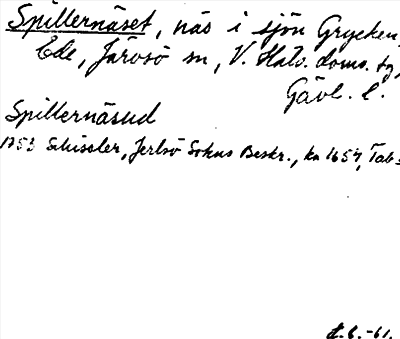 Spillernäset, näs i sjön Grycken,
Ede, Järvsö sn, V. Häls. doms. tg,
Gävl. l.
Spillernäsud
1753 Schissler, Jerlsö Sokns Beskr., ka 1657, Tab
-61.